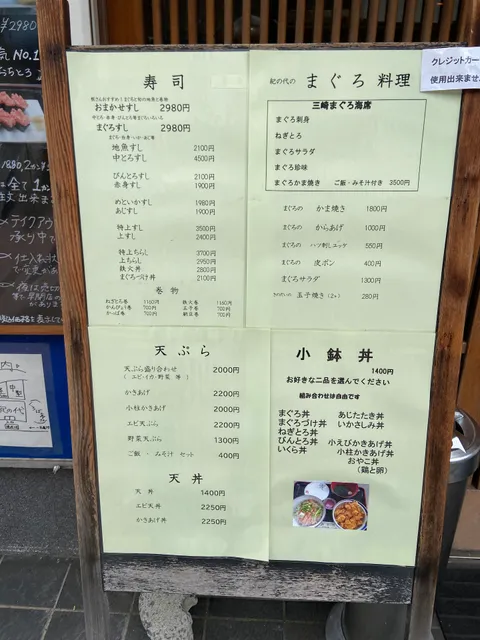 寿司
おまかせずし 2980円
まぐろずし 2980円
地魚すし 2100円
中とろすし 4500円
びんとろすし 2100円
赤身すし 1900円
めといかすし 1980円
あじすし 1900円
特上すし 3500円
上すし 2400円
特上ちらし 3700円
上ちらし 2950円
鉄火丼 2800円
まぐろづけ丼 2100円
巻物
ねぎとろ巻 1160円 鉄火巻 1160円
かんぴょう巻 700円 玉子巻 700円
かっぱ巻 700円 納豆巻 700円
紀の代の まぐろ料理
三崎まぐろ海席
まぐろ刺身
ねぎとろ
まぐろサラダ
まぐろ珍味
まぐろかま焼き ご飯・みそ汁付き 3500円
まぐろの かま焼き 1800円
まぐろの からあげ 1000円
まぐろの ハツ刺しユッケ 550円
まぐろの 皮ポン 400円
まぐろサラダ 1300円
玉子焼き(2ヶ) 280円
天ぷら
天ぷら盛り合わせ 2000円
(エビ・イカ・野菜 等)
かきあげ 2200円
小柱かきあげ 2000円
エビ天ぷら 2200円
野菜天ぷら 1300円
ご飯・みそ汁 セット 400円
天丼
天丼 1400円
エビ天丼 2250円
かきあげ丼 2250円
小鉢丼
1400円
お好きな二品を選んでください
組み合わせは自由です
まぐろ丼 あじたたき丼
まぐろづけ丼 いかさしみ丼
ねぎとろ丼
びんとろ丼 小えびかきあげ丼
いくら丼 小柱かきあげ丼
おやこ丼
(鶏と卵)
クレジットカー
使用出来ませ